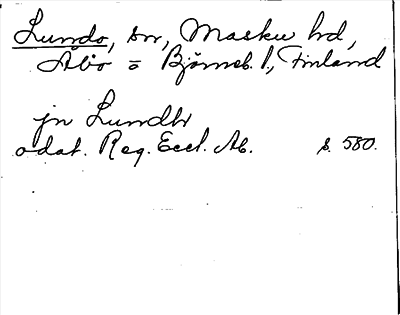 Lundo, sn, Masku hd,
Åbo o Björneb. l., Finland
jn Lundhr
odat. Reg. Eccl. Ab. s. 580.